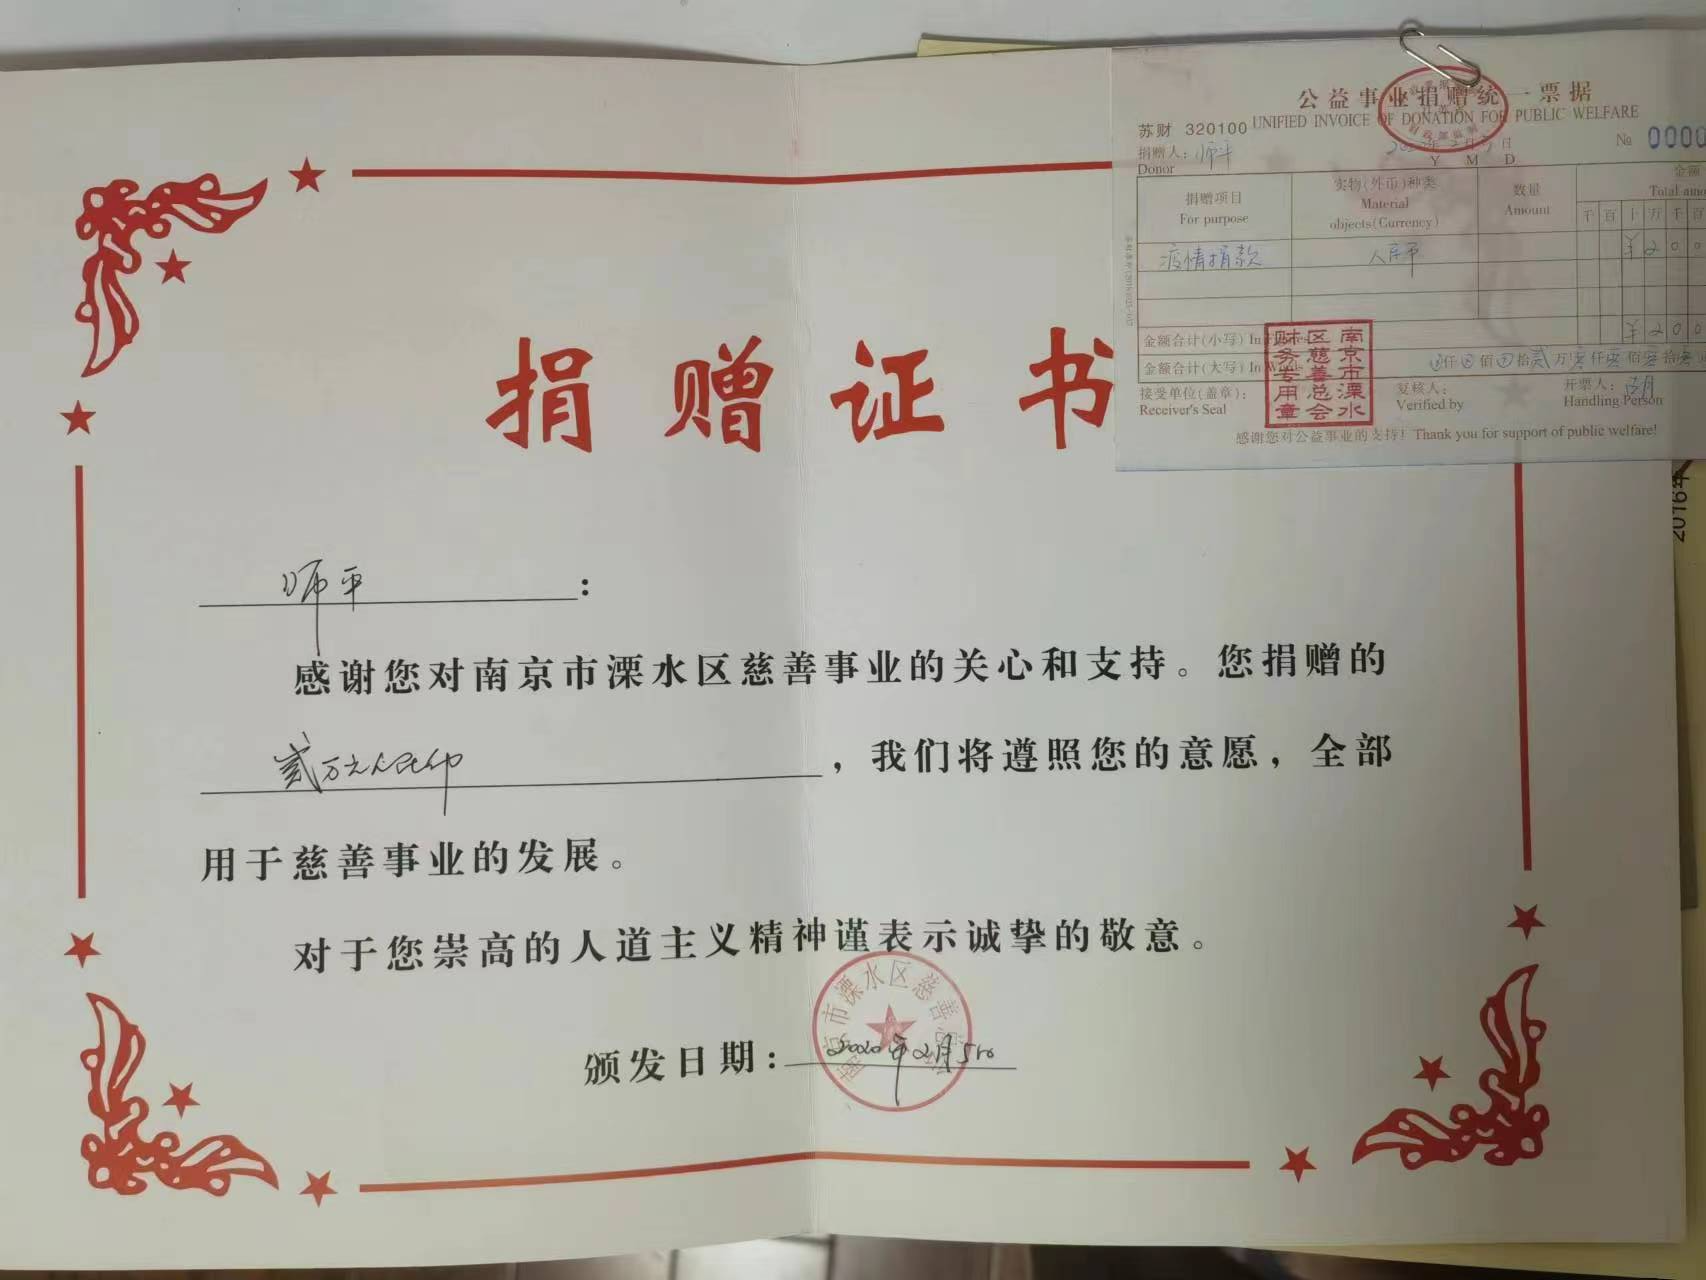 捐赠证书
师平：
感谢您对南京市溧水区慈善事业的关心和支持。您捐赠的
贰万元人民币，我们将遵照您的意愿，全部
用于慈善事业的发展。
对于您崇高的人道主义精神谨表示诚挚的敬意。
颁发日期：2020年2月5日
南京市溧水区慈善总会
公益事业捐赠统一票据
UNIFIED INVOICE OF DONATION FOR PUBLIC WELFARE
苏财 320100
№ 0000
捐赠人：师平
Donor
年 月 日
Y M D
捐赠项目
For purpose
实物(外币)种类
Material
objects(Currency)
数量
Amount
金额
Total amo
千 百 十 万 千 百
疫情捐款 人民币 ¥ 2 0 0
金额合计(小写) In ¥ 2 0 0
金额合计(大写) In 仟 佰 拾贰万零仟零佰零拾零
接受单位(盖章)：
Receiver's Seal
南京市溧水
区慈善总会
财务专用章
复核人：
Verified by
开票人：
Handling Person
感谢您对公益事业的支持！Thank you for support of public welfare!
2016年